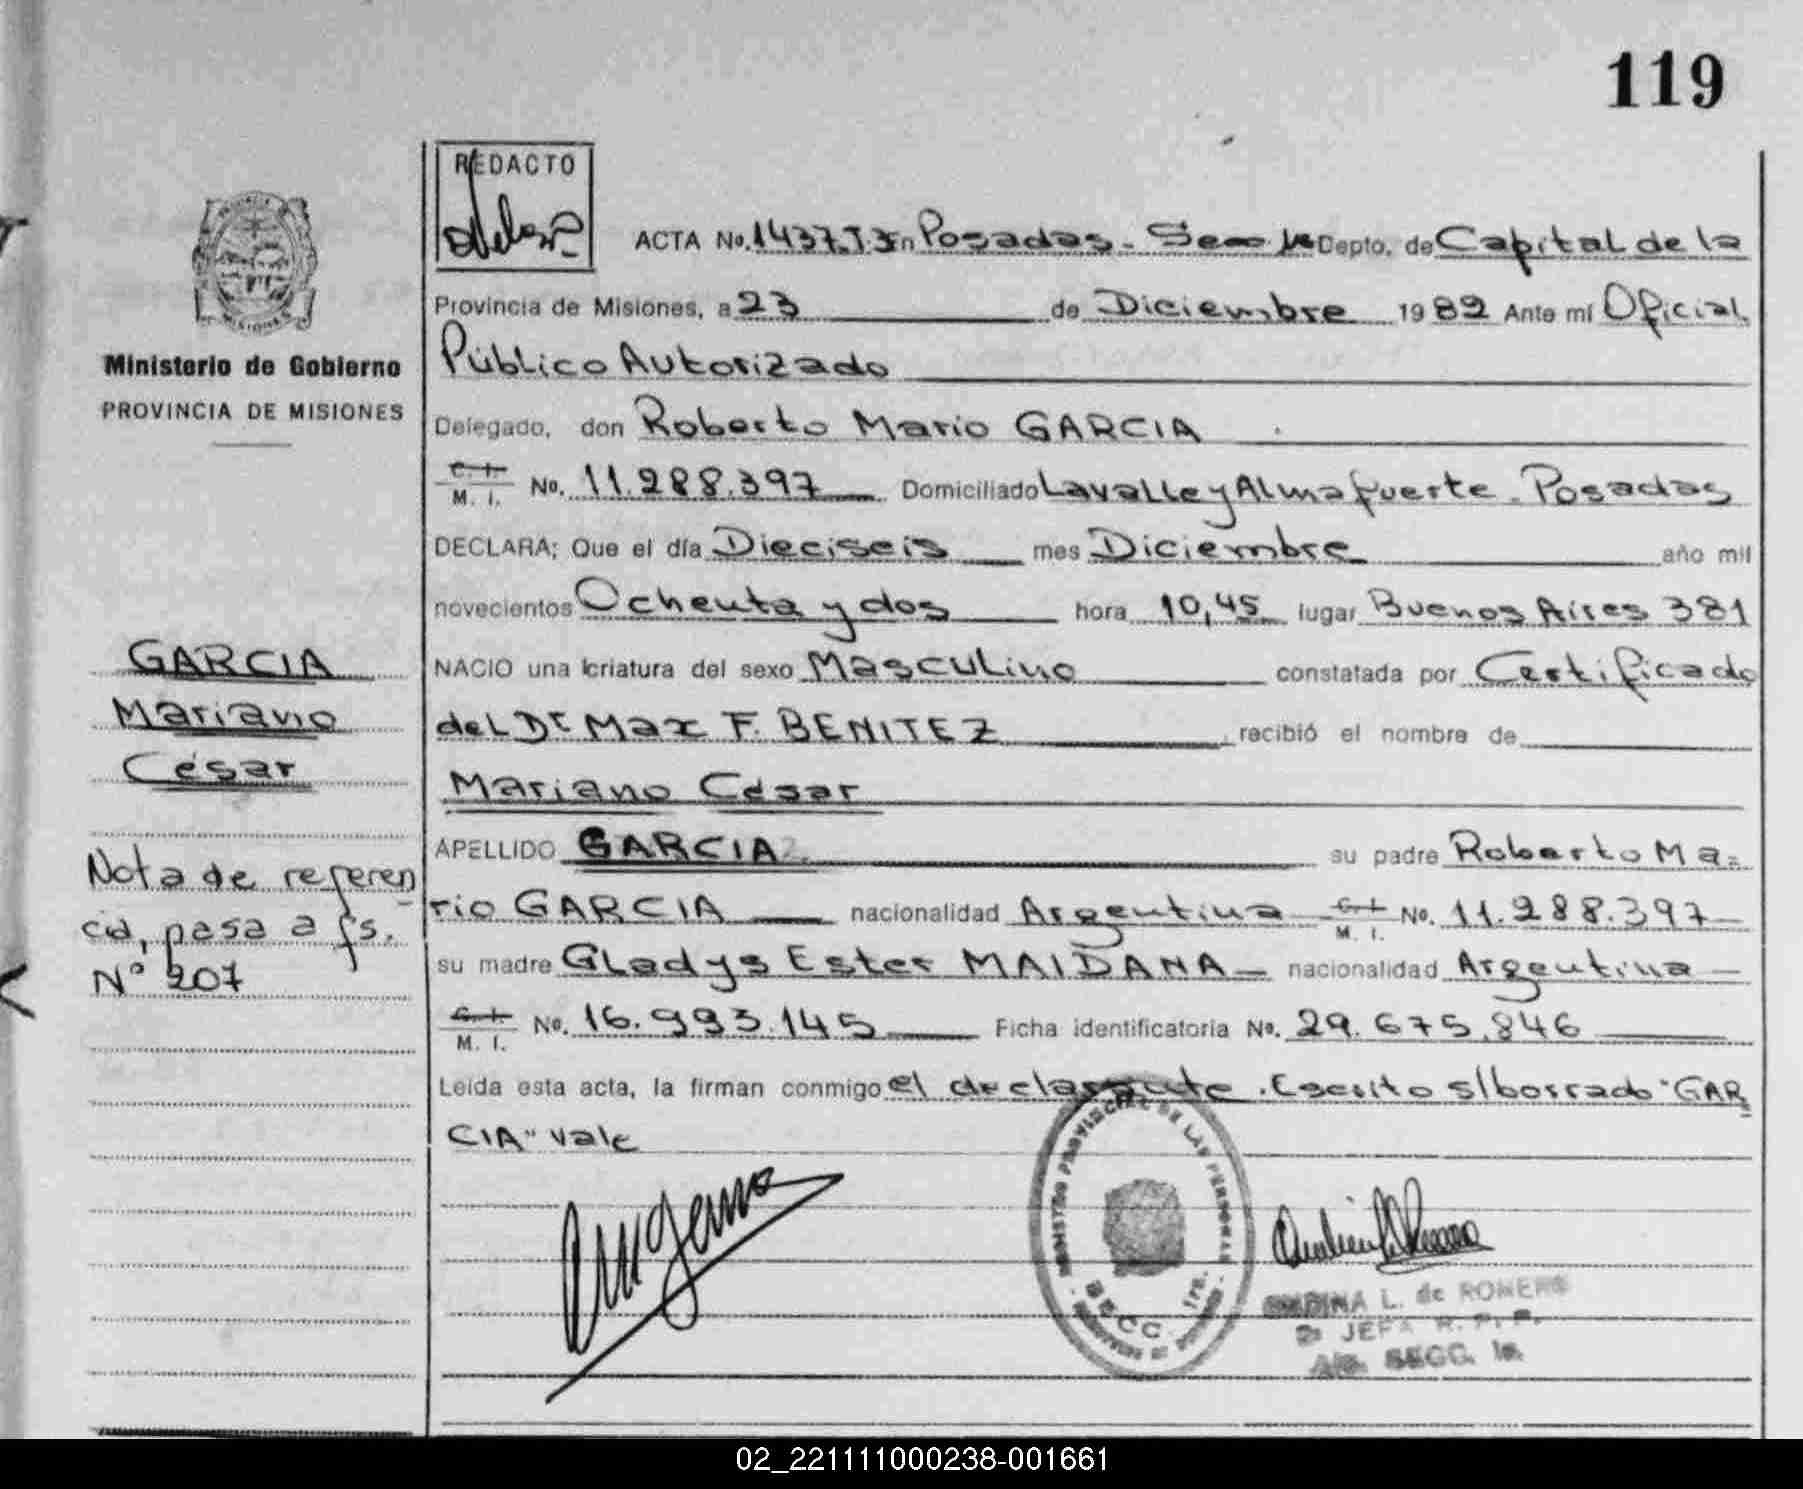 119
REDACTO
ACTA No. 1437.T.3 En Posadas - Secc 1a Depto. de Capital de la
Provincia de Misiones, a 23 de Diciembre 1982 Ante mí Oficial
Público Autorizado
Delegado, don Roberto Mario GARCIA
C. I. M. I. No. 11.288.397 Domiciliado Lavalle y Almafuerte - Posadas
DECLARA; Que el día Dieciseis mes Diciembre año mil
novecientos Ochenta y dos hora 10,45 lugar Buenos Aires 381
NACIO una criatura del sexo Masculino constatada por Certificado
del Dr Max F. BENITEZ recibió el nombre de
Mariano César
APELLIDO GARCIA su padre Roberto Ma-
rio GARCIA nacionalidad Argentina C. I. M. I. No. 11.288.397
su madre Gladys Ester MAIDANA nacionalidad Argentina
C. I. M. I. No. 16.993.145 Ficha identificatoria No. 29.675.846
Leída esta acta, la firman conmigo el declarante. Escrito s/borrado "GAR
CIA" vale
Ministerio de Gobierno
PROVINCIA DE MISIONES
GARCIA
Mariano
César
Nota de referen
cia, pasa a fs.
N° 207
REGISTRO PROVINCIAL DE LAS PERSONAS
SECC. 1ra.
L. de ROMERO
JEFA R. P. P.
SECC. 1a.
02_221111000238-001661